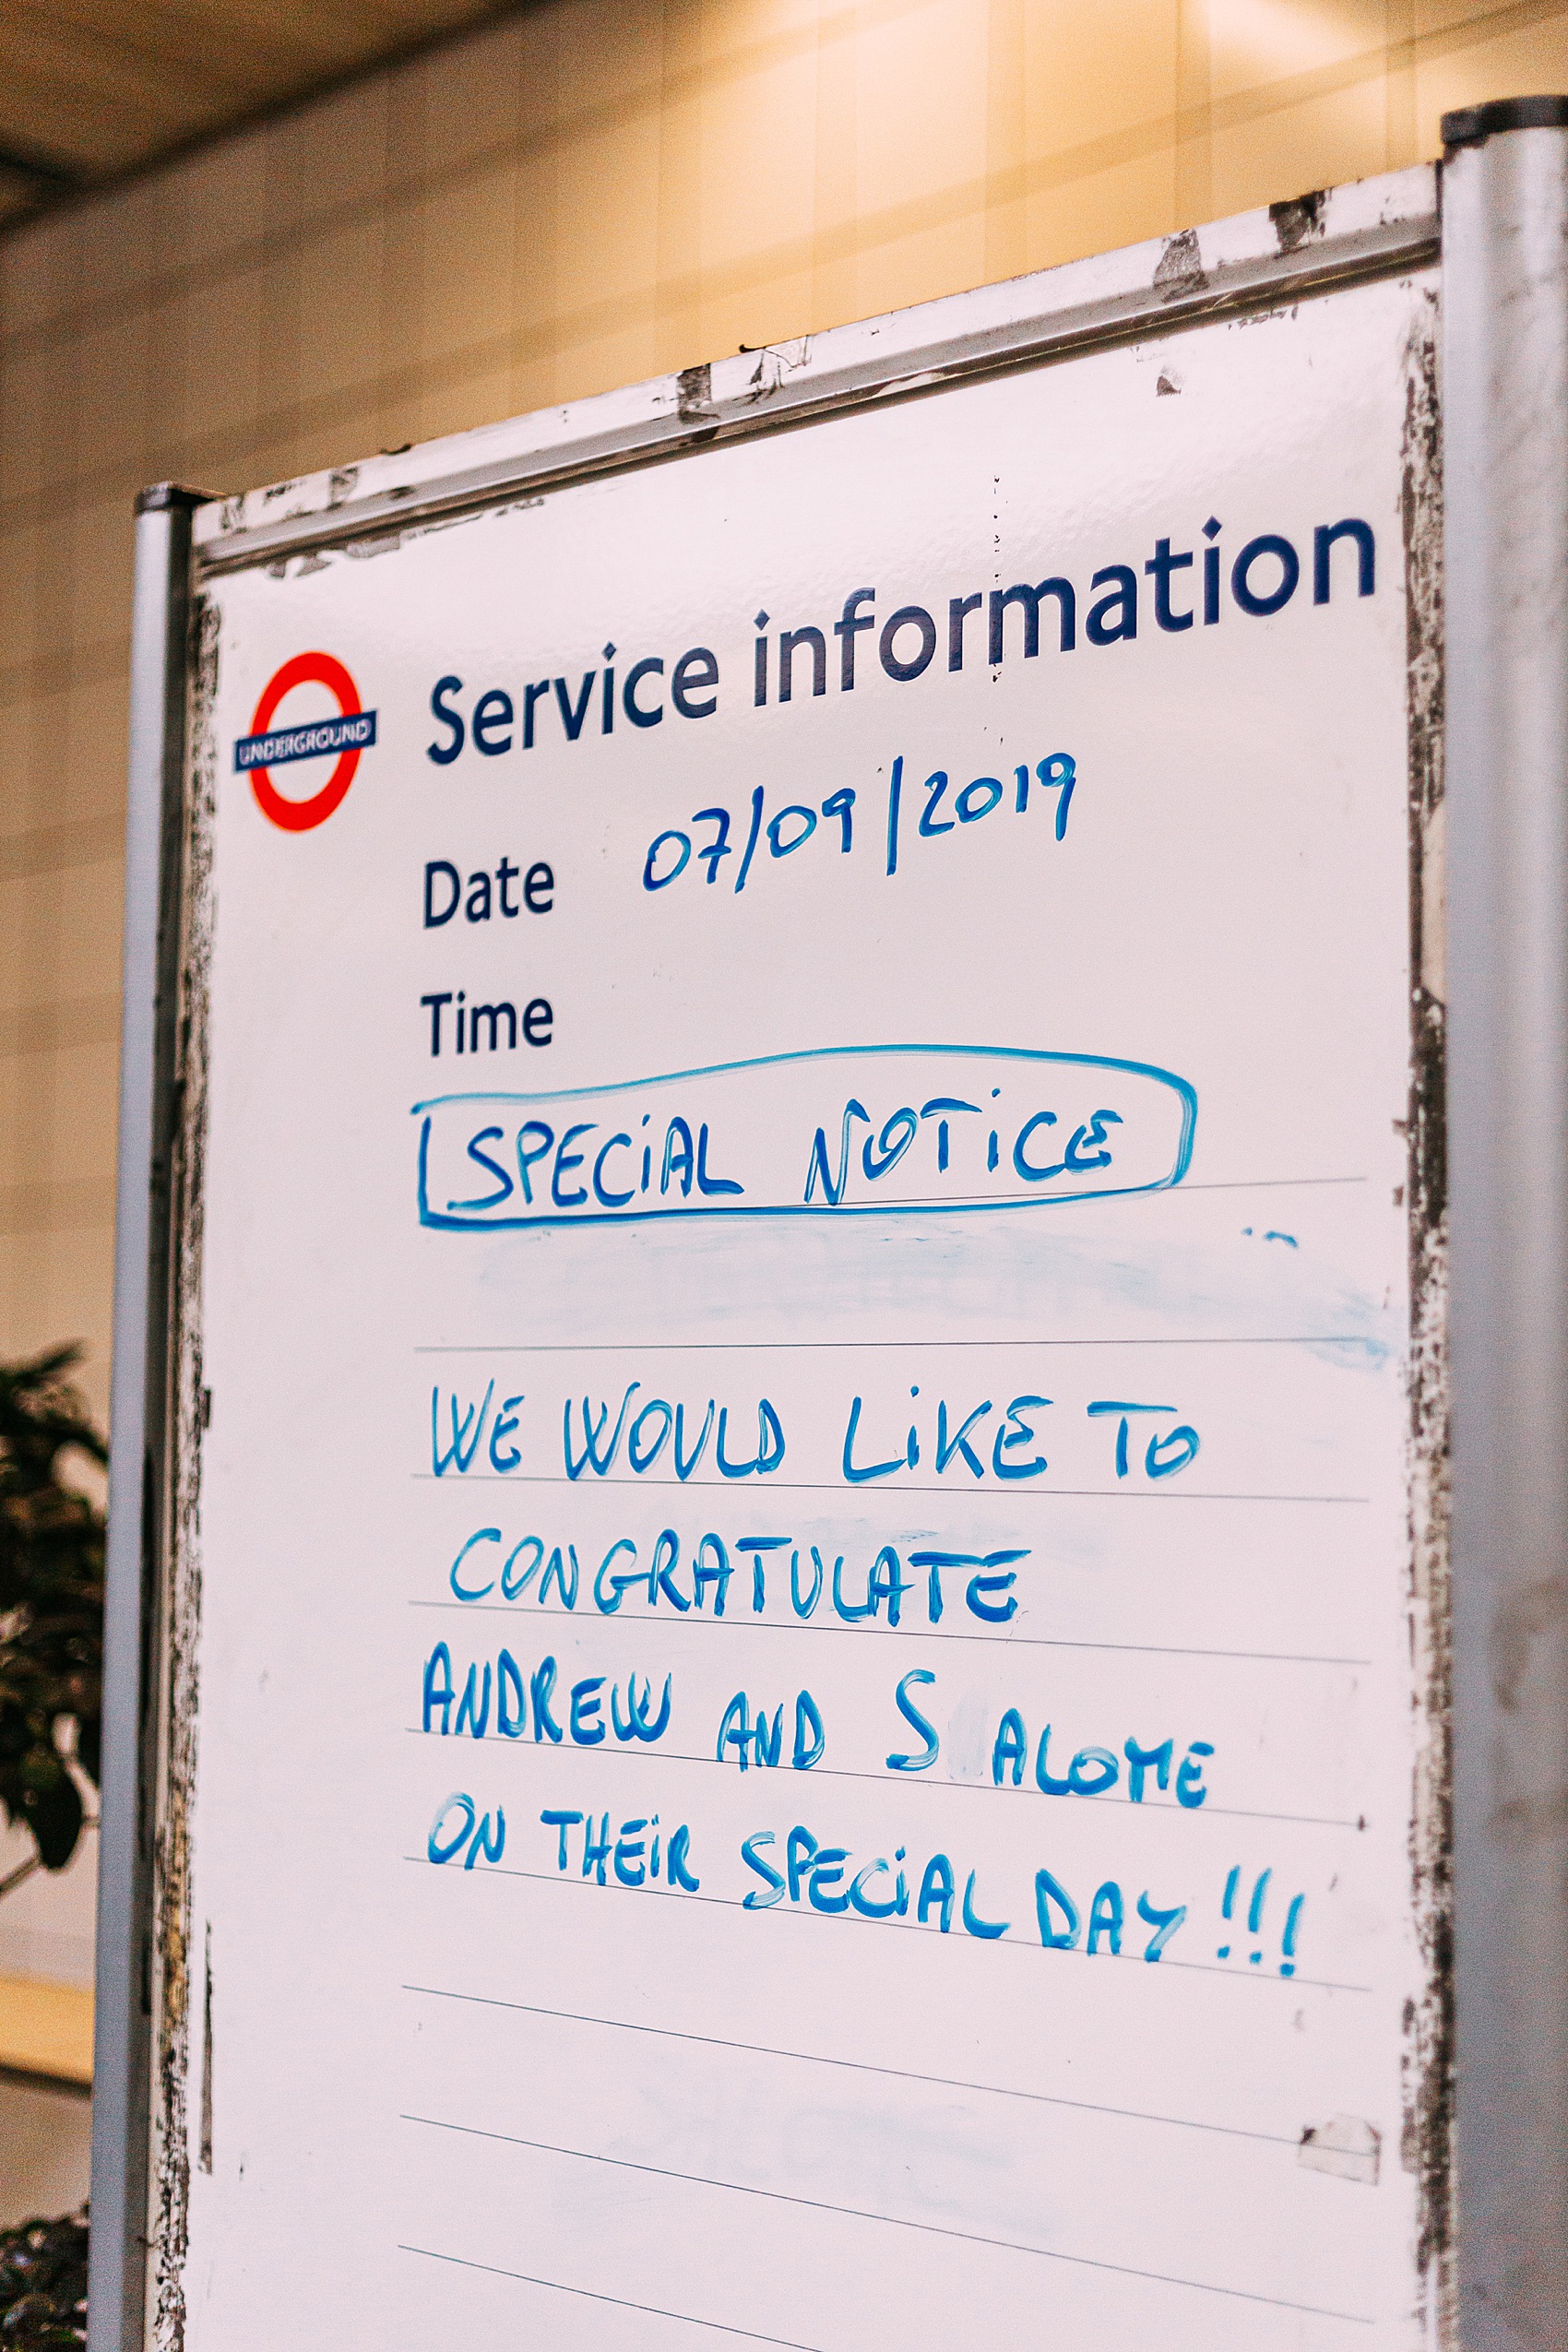 Service information
UNDERGROUND
Date 07/09/2019
Time
SPECIAL NOTICE
WE WOULD LIKE TO
CONGRATULATE
ANDREW AND S ALOME
ON THEIR SPECIAL DAY!!!